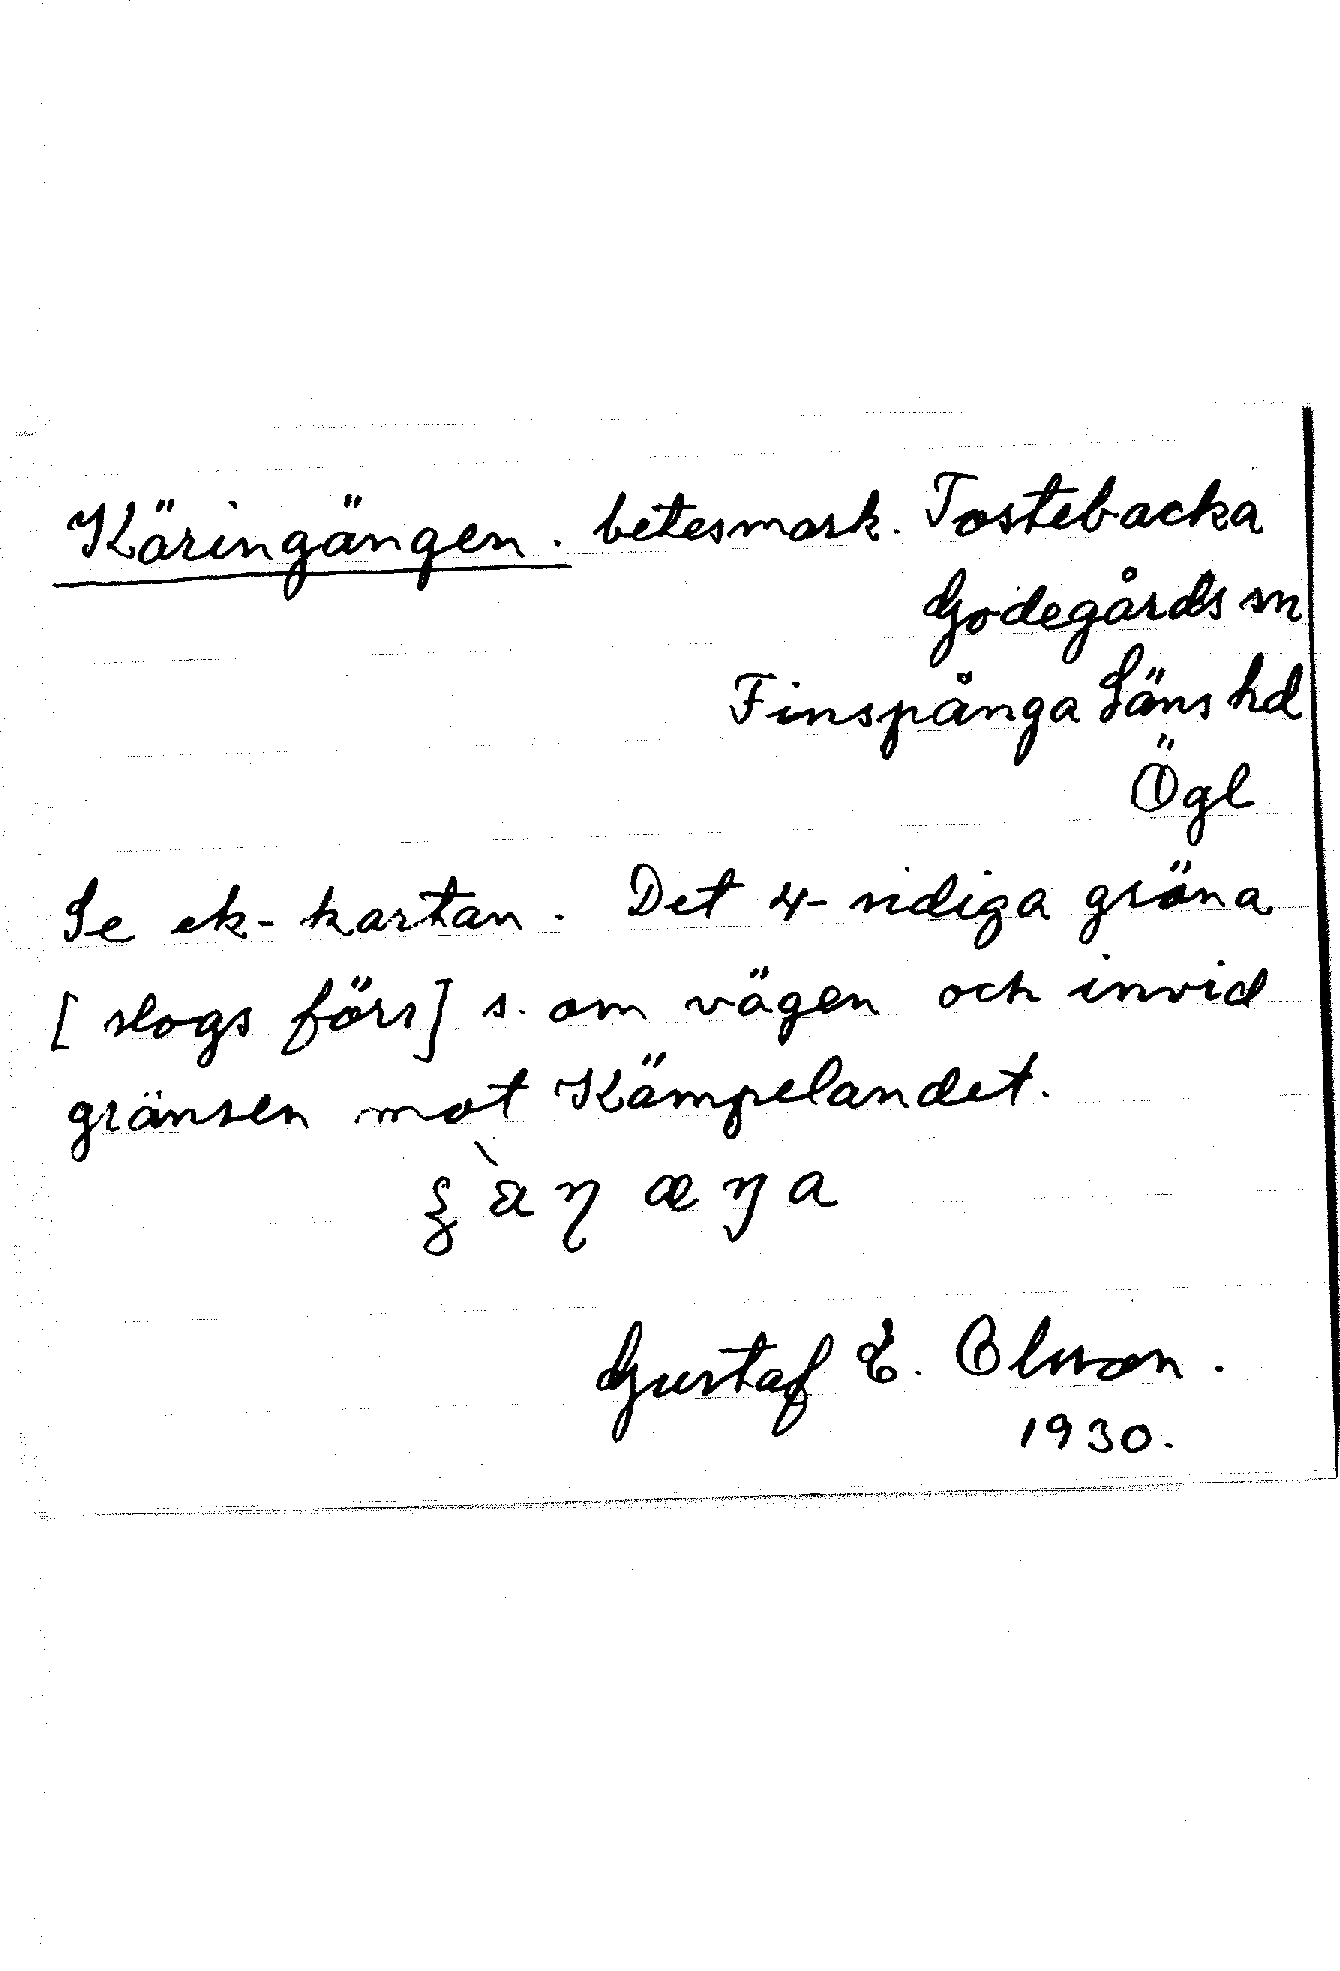 Käringängen. betesmark. Tostebacka
Godegårds sn
Finspånga Läns hd
Ögl
Se ek-kartan. Det 4-sidiga gröna
[slogs förs] s. om vägen och invid
gränsen mot Kämpelandet.
Gustaf E. Olsson.
1930.